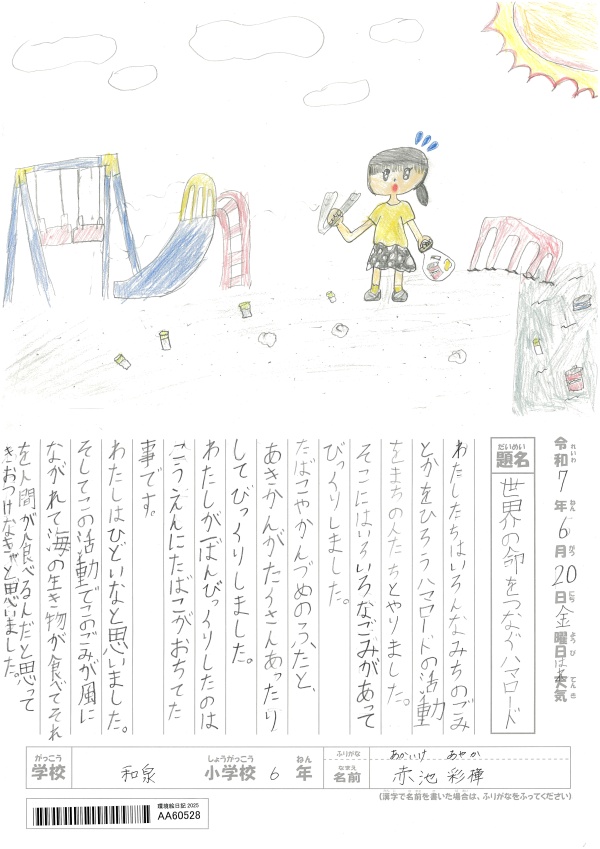 令和7年6月20日金曜日 天気は
れいわ ねん がつ にち ようび てんき
だいめい
題名 世界の命をつなぐハマロード
わたしたちはいろんなみちのごみ
とかをひろうハマロードの活動
をまちの人たちとやりました。
そこにはいろいろなごみがあって
びっくりしました。
たばこやかんづめのふたと、
あきかんがたくさんあったり
してびっくりしました。
わたしが一ばんびっくりしたのは
こうえんにたばこがおちてた
事です。
わたしはひどいなと思いました。
そしてこの活動でこのごみが風に
ながれて海の生き物が食べてそれ
を人間が食べるんだと思って
きおつけなきゃと思いました。
がっこう しょうがっこう ねん ふりがな あかいけ あやか
学校 和泉 小学校 6 年 なまえ 名前 赤池 彩樺
(漢字で名前を書いた場合は、ふりがなをふってください)
環境絵日記 2025
AA60528